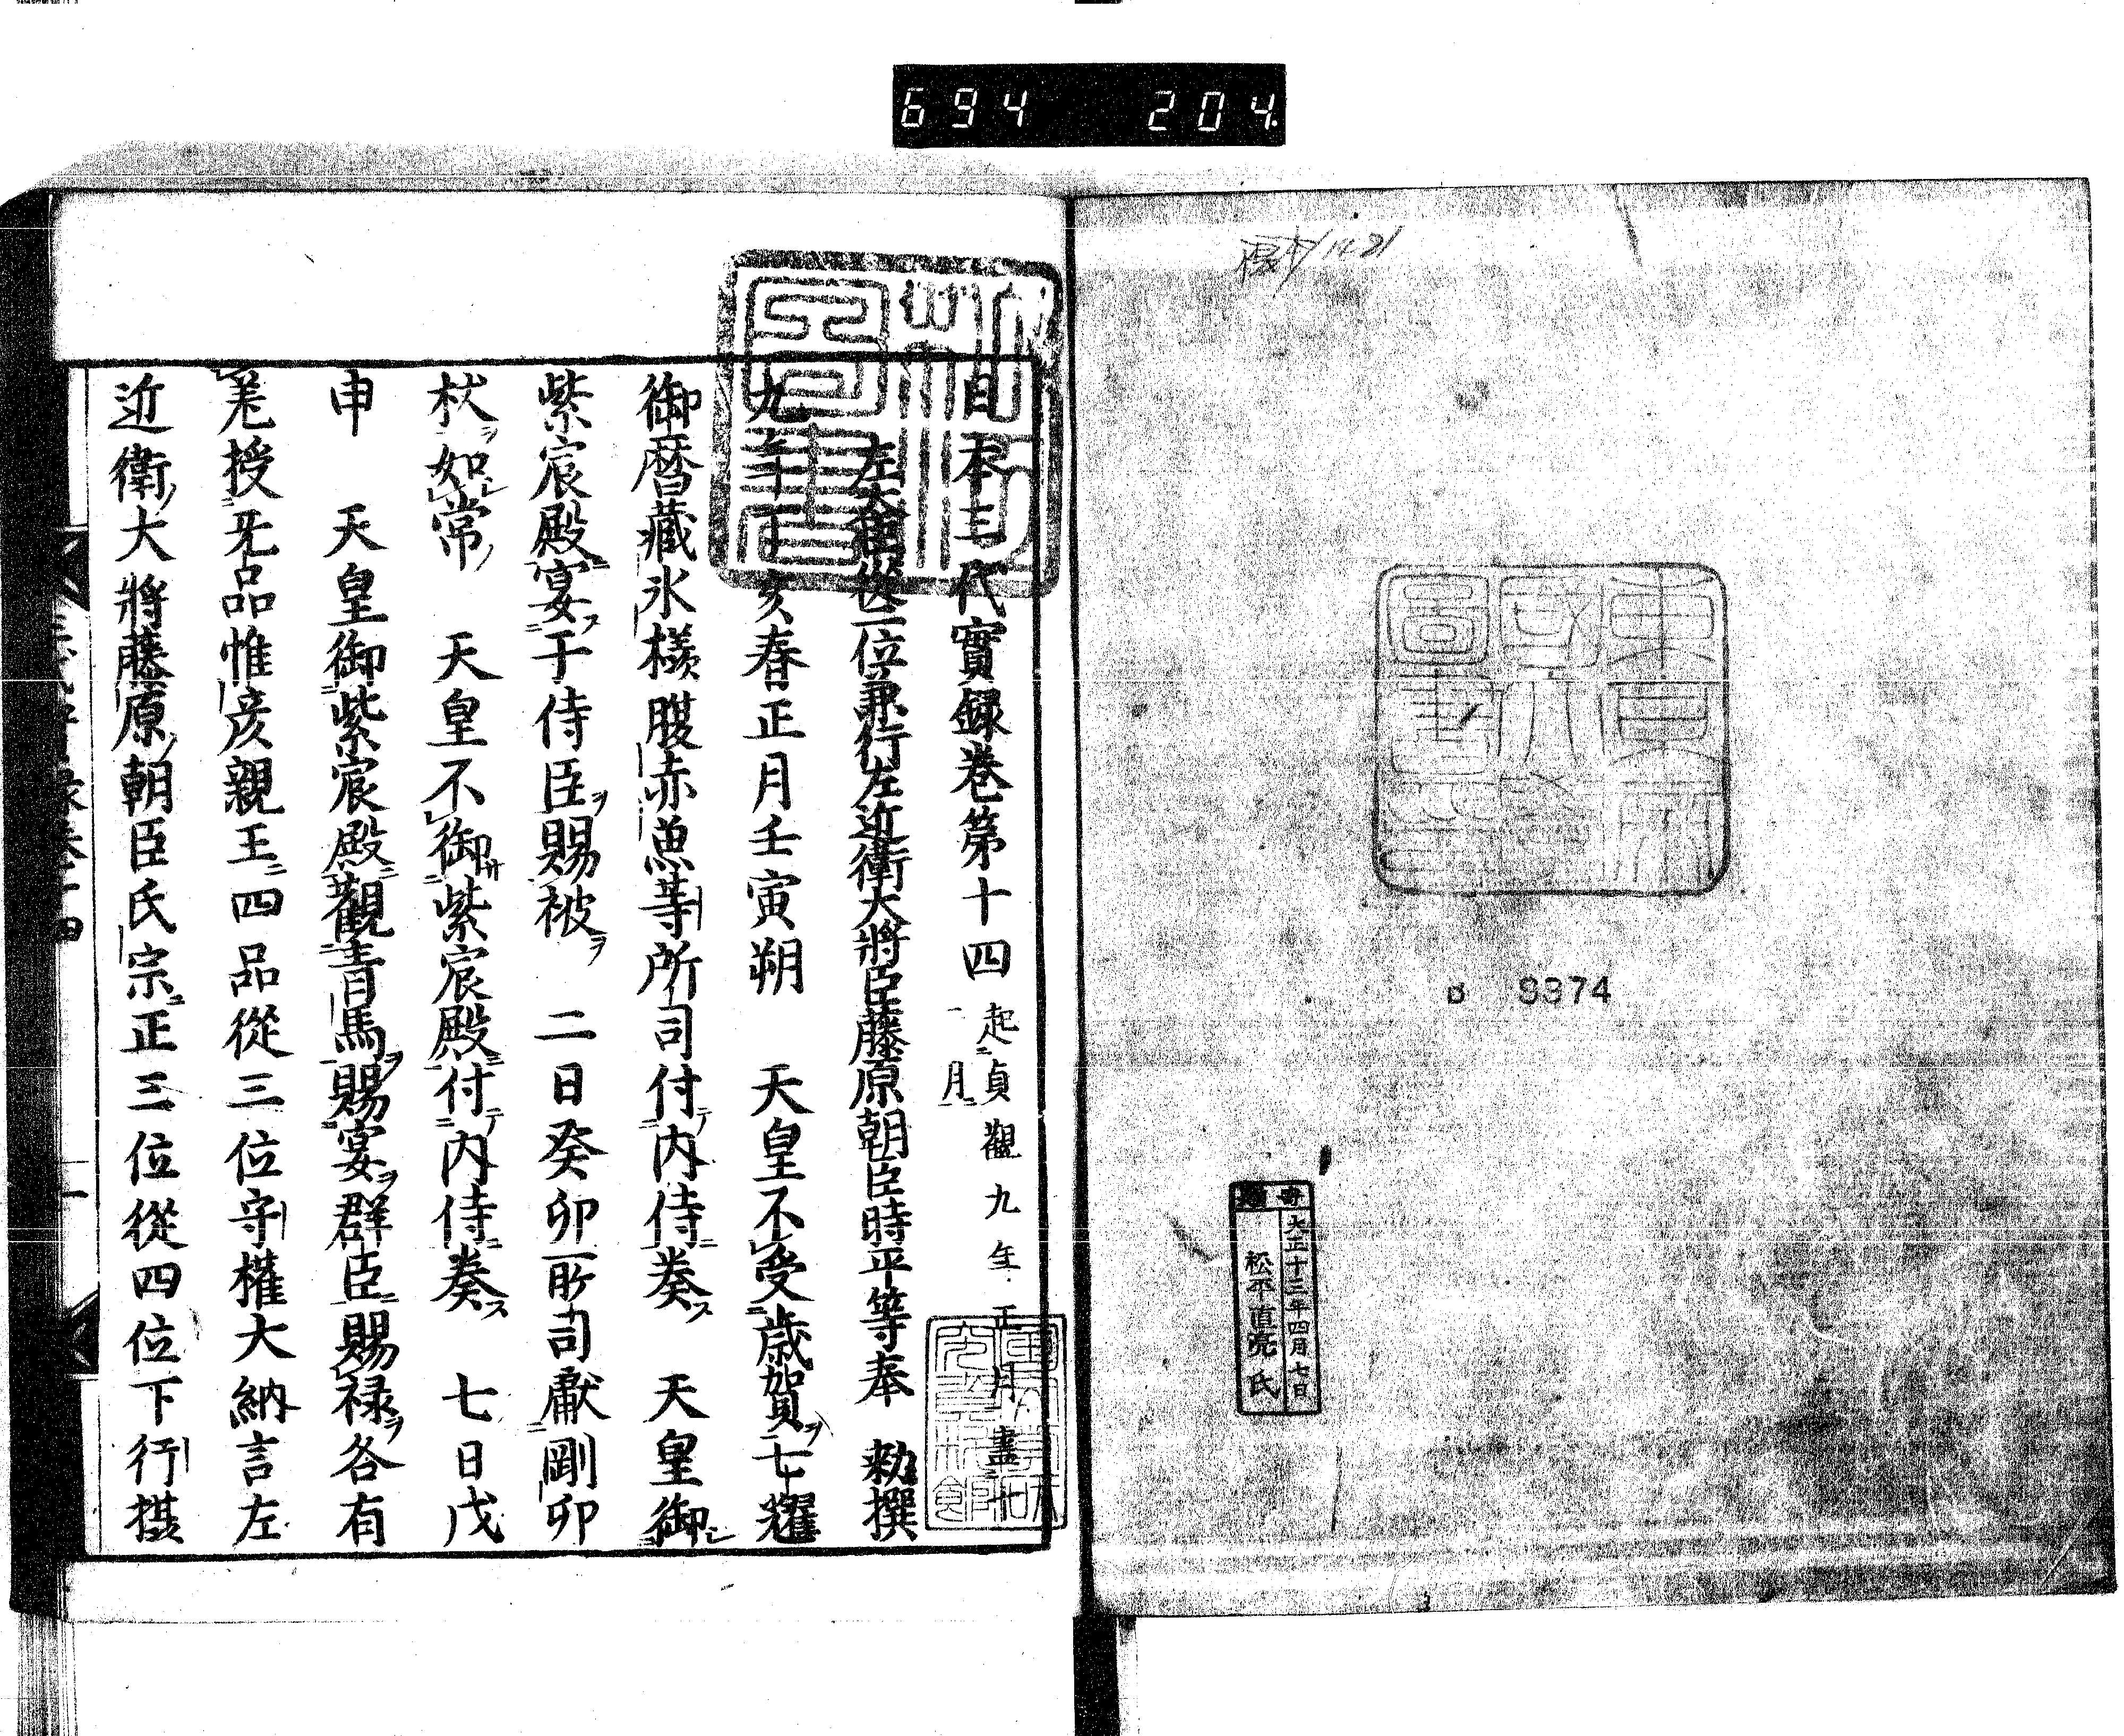 694 204
東京府
図書
B 8374
大正十三年四月七日
松平直亮氏
日本三代實録巻第十四 起貞觀九年正月盡十一月
左大臣從二位兼行左近衛大將臣藤原朝臣時平等奉 勅撰
九年丁亥春正月壬寅朔 天皇不受歲賀七耀
御曆藏氷様腹赤魚等所司付内侍奏 天皇御
紫宸殿宴于侍臣賜被 二日癸卯所司獻剛卯
杖如常 天皇不御紫宸殿付内侍奏 七日戊
申 天皇御紫宸殿觀青馬賜宴群臣賜禄各有
差授无品惟彦親王四品從三位守權大納言左
近衛大將藤原朝臣氏宗正三位從四位下行摂